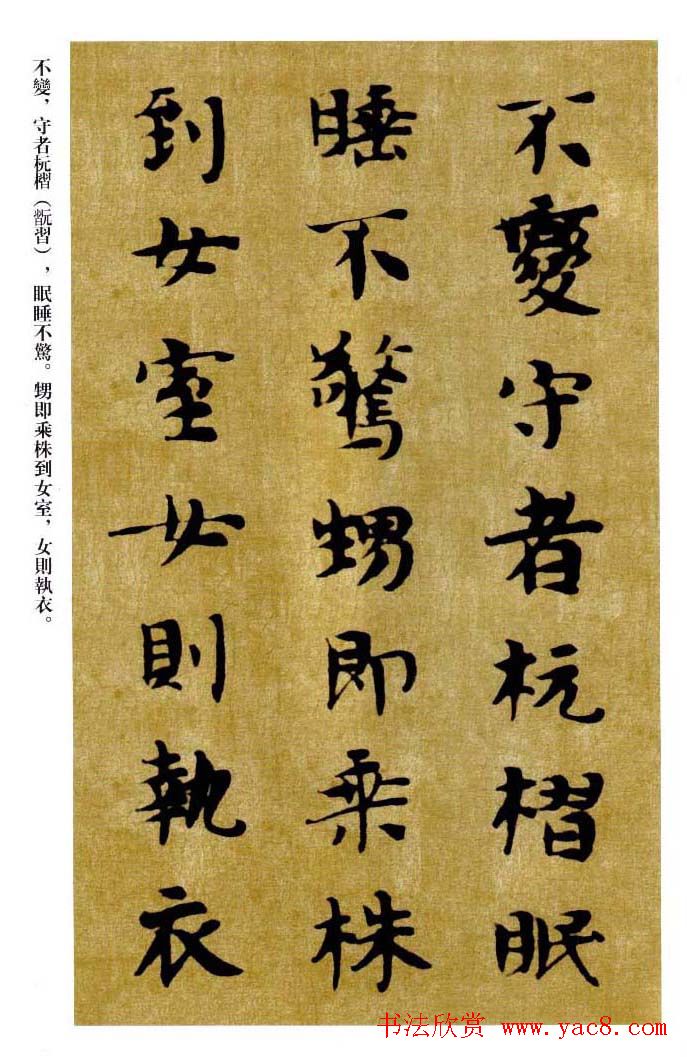 不變守者杬槢眠
睡不驚甥即乘株
到女室女則執衣
不變，守者杬槢（翫習），眠睡不驚。甥即乘株到女室，女則執衣。
书法欣赏 www.yac8.com